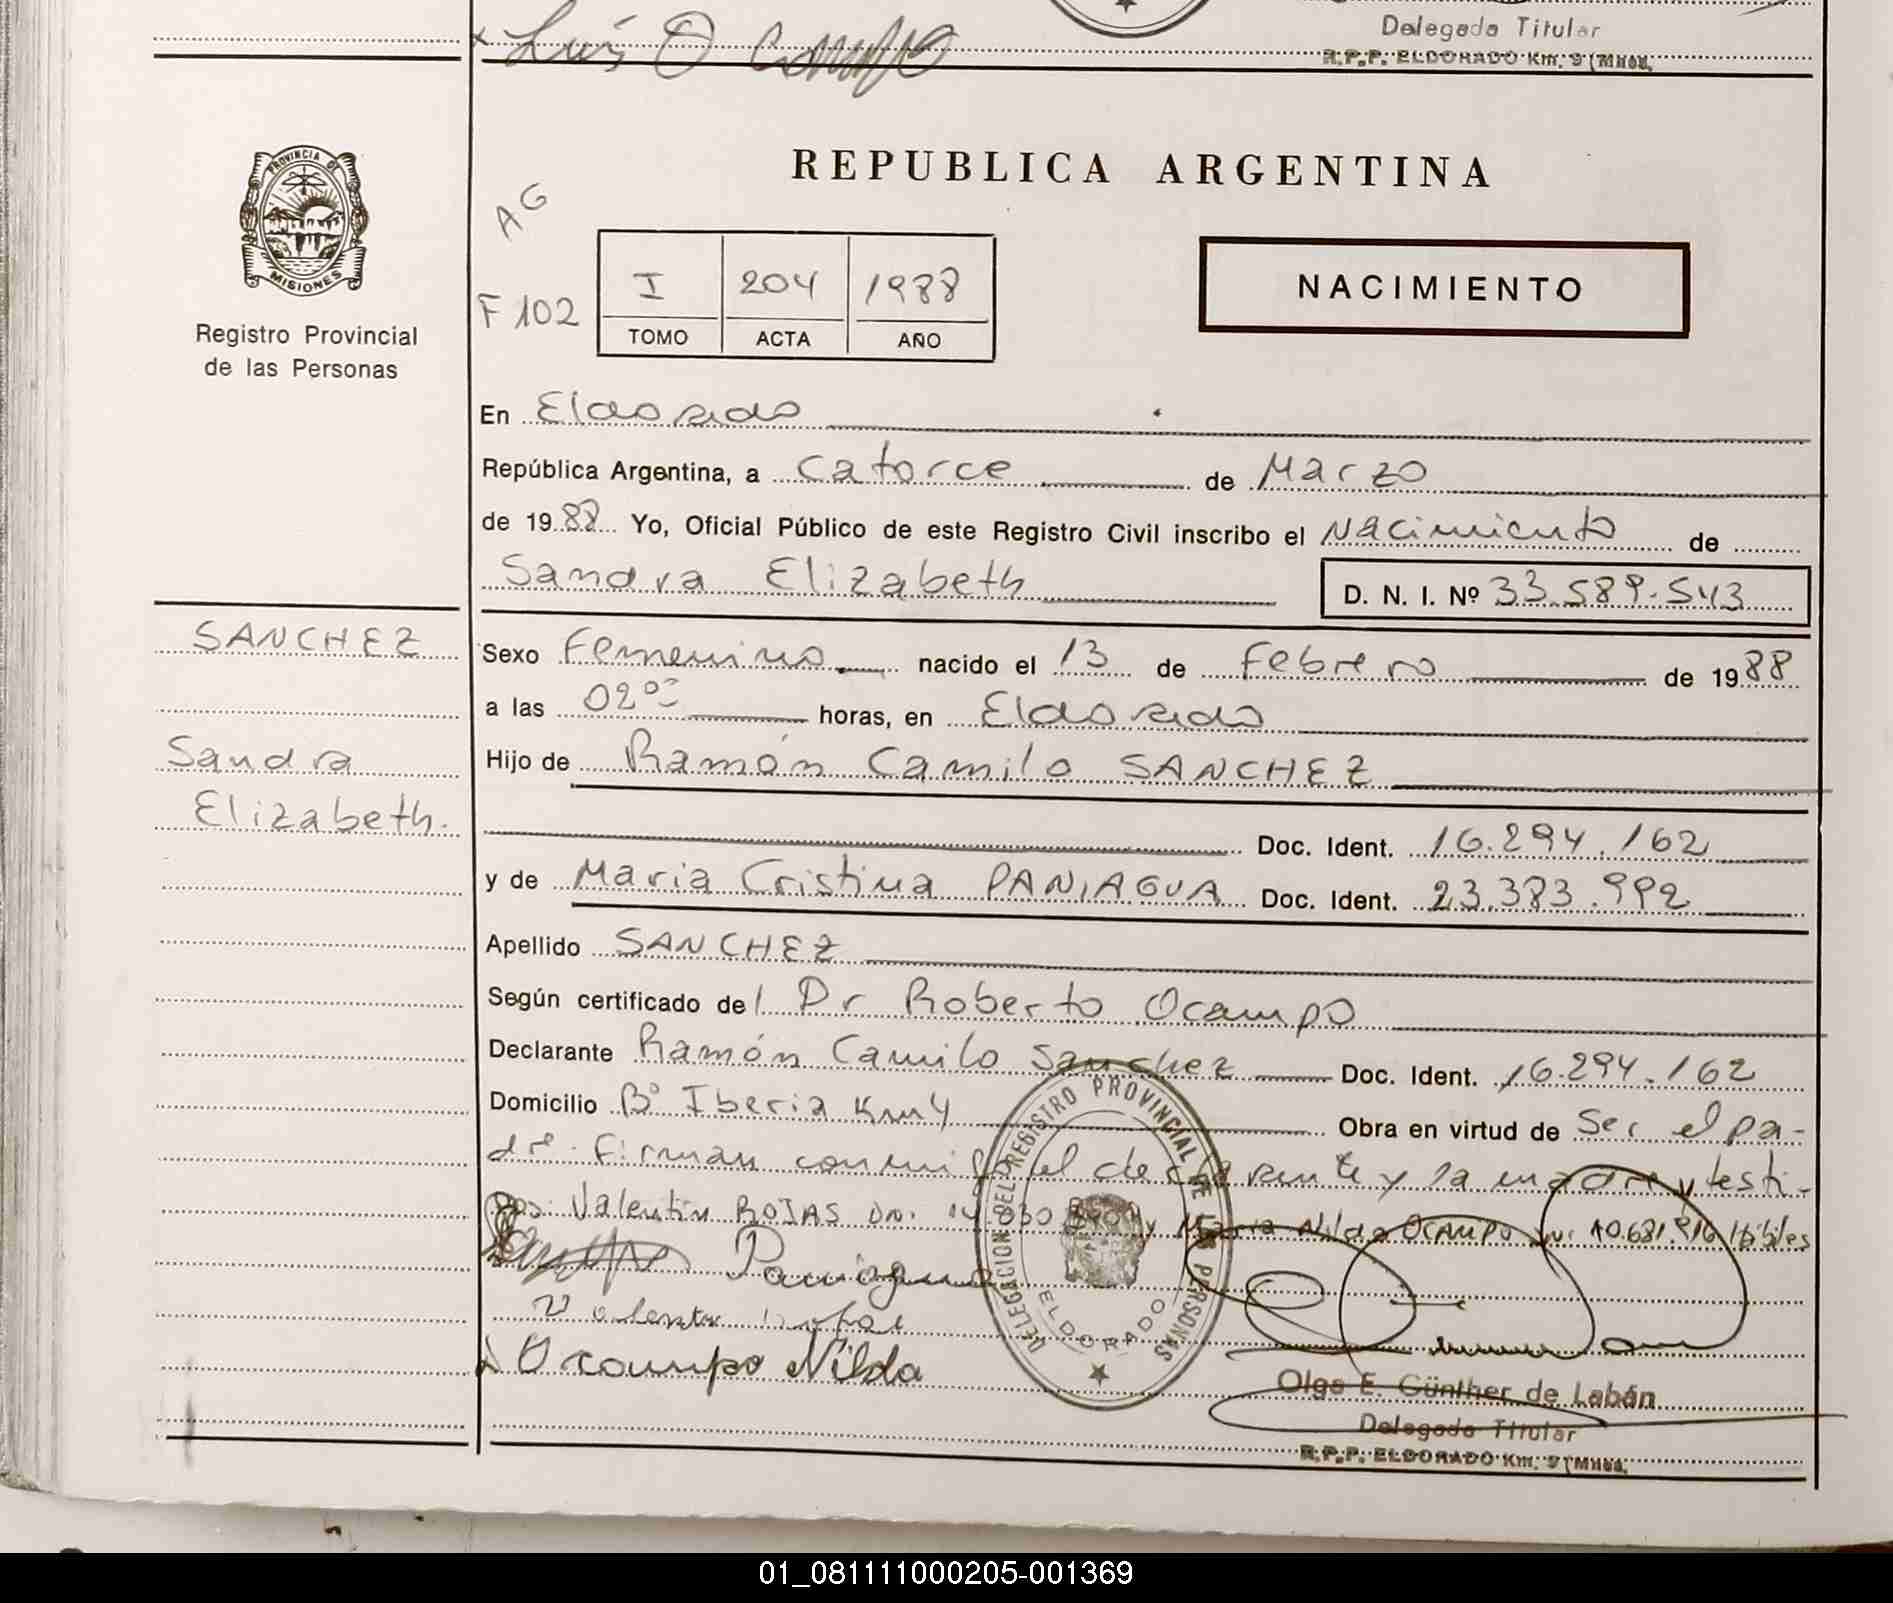 Luis O Campo
Delegada Titular
R.P.P. ELDORADO Km. 9 (Mnes.
PROVINCIA DE
MISIONES
Registro Provincial
de las Personas
REPUBLICA ARGENTINA
AG
F 102
I 204 1988
TOMO ACTA AÑO
NACIMIENTO
En Eldorado
República Argentina, a catorce de Marzo
de 1988 Yo, Oficial Público de este Registro Civil inscribo el Nacimiento de
Sandra Elizabeth D. N. I. Nº 33.589.543
SANCHEZ
Sexo Femenino nacido el 13 de Febrero de 1988
a las 02⁰⁰ horas, en Eldorado
Sandra
Hijo de Ramón Camilo SANCHEZ
Elizabeth.
Doc. Ident. 16.294.162
y de Maria Cristina PANIAGUA Doc. Ident. 23.383.992
Apellido SANCHEZ
Según certificado del Dr Roberto Ocampo
Declarante Ramón Camilo Sanchez Doc. Ident. 16.294.162
Domicilio Bº Iberia Km 4 Obra en virtud de Ser el pa-
dre. Firman conmigo el declarante y la madre y testi-
gos: Valentin ROJAS DNI 14.830 y Maria Nilda OCAMPO DNI 10.681.916 Hábiles
Paniagua
Valentin Rojas
Ocampo Nilda
DELEGACION DEL REGISTRO PROVINCIAL DE LAS PERSONAS
ELDORADO
Olga E. Günther de Labán
Delegada Titular
R.P.P. ELDORADO Km. 9 (Mnes.
01_081111000205-001369